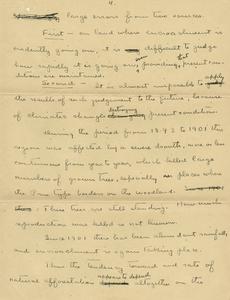 4.
large errors from two sources.
First - on land where encroachment is
evidently going on, it is difficult to judge
how rapidly it is going on, even providing that present con-
ditions are maintained.
Second - It is almost impossible to apply
the results of such judgement to the future, because
of climatic changes destroying present conditions.
During the period from 1892 to 1901 this
region was affected by a severe drouth, more or less
continuous from year to year, which killed large
numbers of grown trees, especially in places where
the Pine type borders on the woodland.
These trees are still standing. How much
reproduction was killed is not known.
Since 1901 there has been abundant rainfall,
and encroachment is again taking place.
Thus the tendency toward and rate of
natural afforestation appears to depend altogether on the